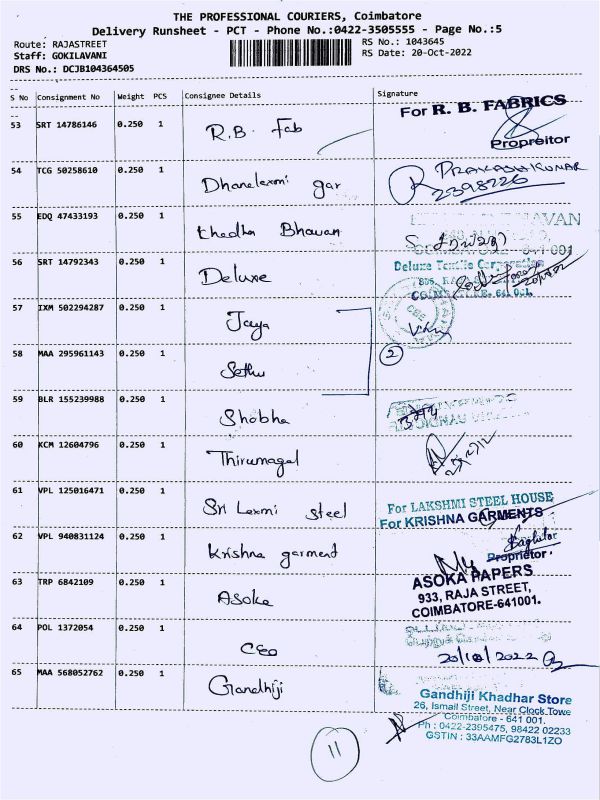 THE PROFESSIONAL COURIERS, Coimbatore
Delivery Runsheet - PCT - Phone No.:0422-3505555 - Page No.:5
Route: RAJASTREET RS No.: 1043645
Staff: GOKILAVANI RS Date: 20-Oct-2022
DRS No.: DCJB104364505
S No Consignment No Weight PCS Consignee Details Signature
53 SRT 14786146 0.250 1 R.B. Fab For R. B. FABRICS
Propreitor
54 TCG 50258610 0.250 1 Dhanelexmi gar PRAKASH KUMAR
2398226
55 EDQ 47433193 0.250 1 thedha Bhavan
COIMBATORE - 641 001
56 SRT 14792343 0.250 1 Deluxe Deluxe Textile Corporation
57 IXM 502294287 0.250 1 Jaya
58 MAA 295961143 0.250 1 Sethu
2
59 BLR 155239988 0.250 1 Shobha
60 KCM 12604796 0.250 1 Thirumagal
61 VPL 125016471 0.250 1 Sri Laxmi Steel For LAKSHMI STEEL HOUSE
For KRISHNA GARMENTS
62 VPL 940831124 0.250 1 Krishna garment
Proprietor
63 TRP 6842109 0.250 1 Asoka ASOKA PAPERS
933, RAJA STREET,
COIMBATORE-641001.
64 POL 1372054 0.250 1 CEO
20/10/2022
65 MAA 568052762 0.250 1 Gandhiji Gandhiji Khadhar Store
26, Ismail Street, Near Clock Towe
Coimbatore - 641 001.
Ph : 0422-2395475, 98422 02233
GSTIN : 33AAMFG2783L1ZO
11